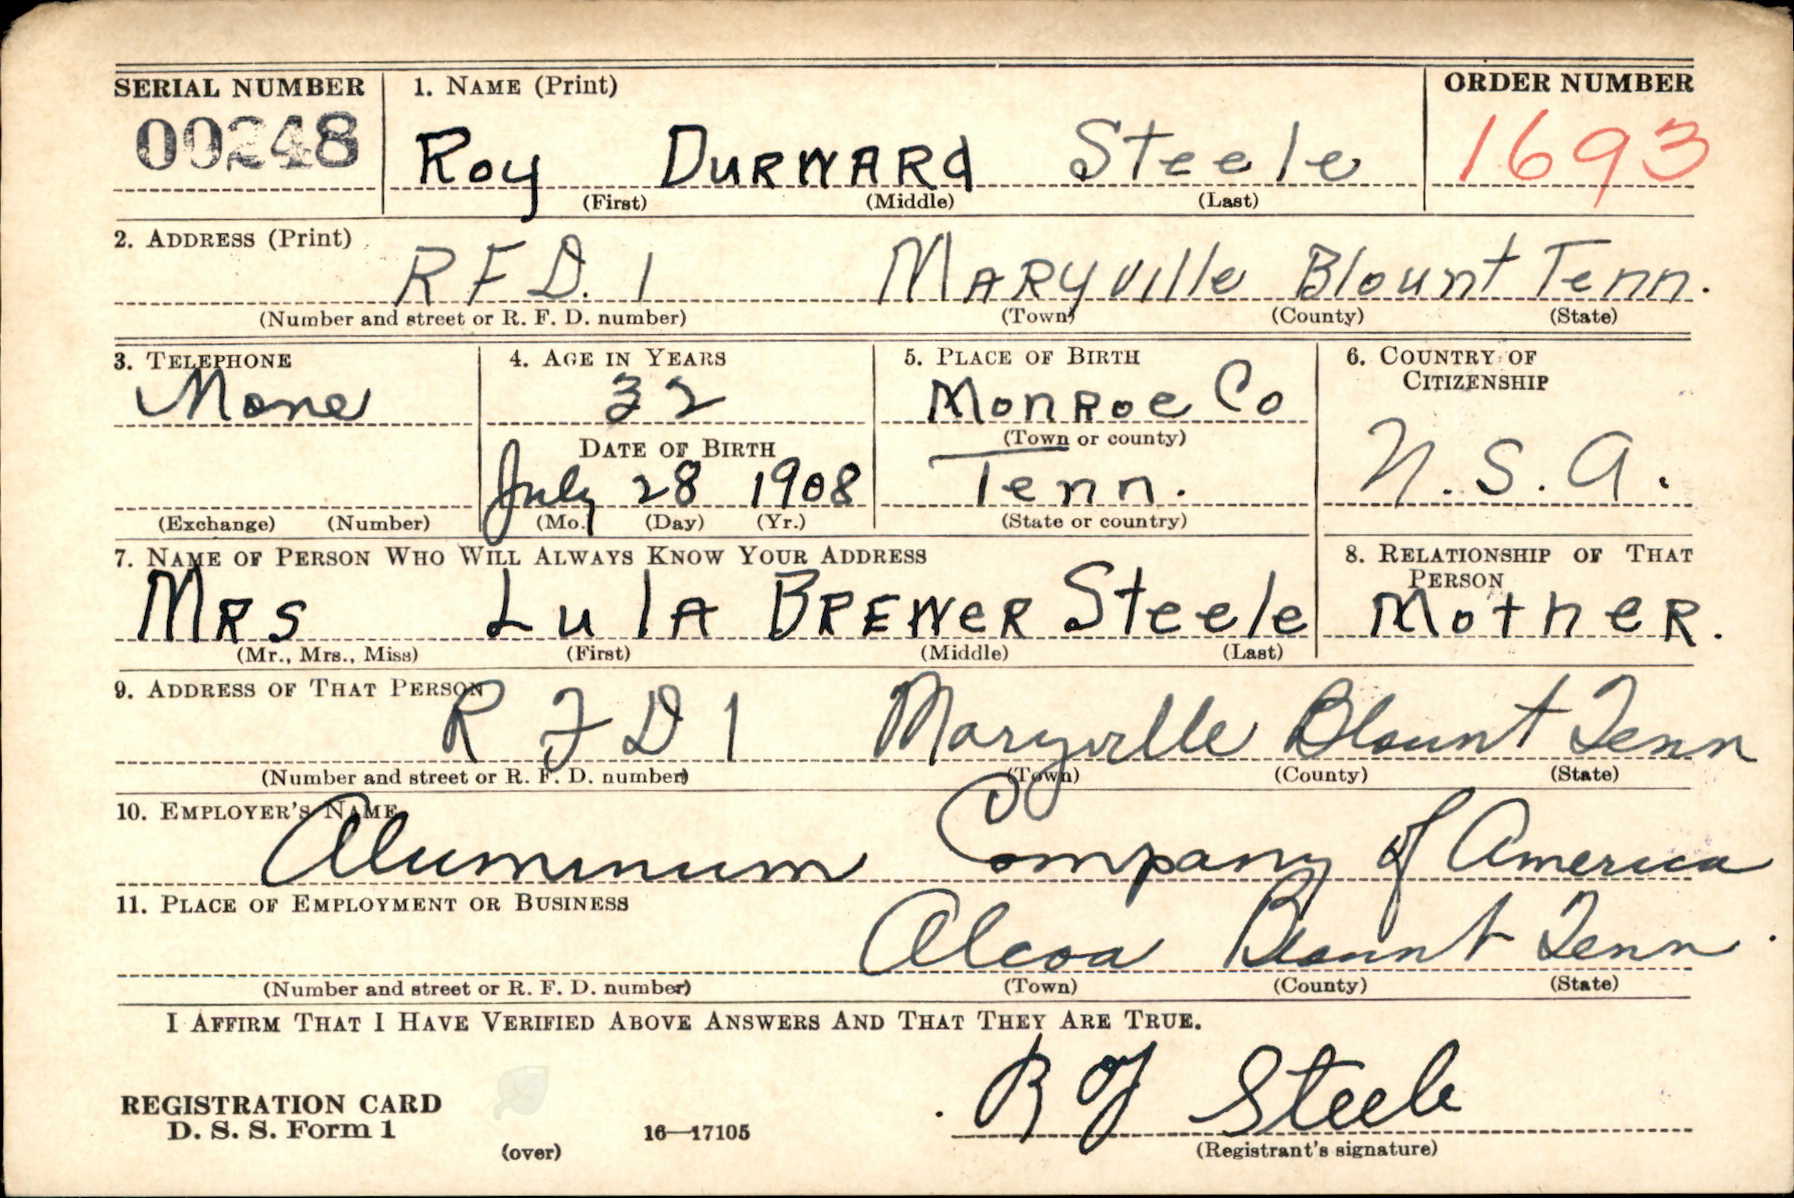 SERIAL NUMBER 1. NAME (Print) ORDER NUMBER
00248 Roy DURWARd Steele 1693
(First) (Middle) (Last)
2. ADDRESS (Print)
R F D. 1 MARYville Blount Tenn.
(Number and street or R. F. D. number) (Town) (County) (State)
3. TELEPHONE 4. AGE IN YEARS 5. PLACE OF BIRTH 6. COUNTRY OF
CITIZENSHIP
None 32 MonRoe Co
DATE OF BIRTH (Town or county)
July 28 1908 Tenn. U.S.A.
(Exchange) (Number) (Mo.) (Day) (Yr.) (State or country)
7. NAME OF PERSON WHO WILL ALWAYS KNOW YOUR ADDRESS 8. RELATIONSHIP OF THAT
PERSON
MRS LulA BREWeR Steele MotheR.
(Mr., Mrs., Miss) (First) (Middle) (Last)
9. ADDRESS OF THAT PERSON
R F D 1 Maryville Blount Tenn
(Number and street or R. F. D. number) (Town) (County) (State)
10. EMPLOYER'S NAME
Aluminum Company of America
11. PLACE OF EMPLOYMENT OR BUSINESS
Alcoa Blount Tenn.
(Number and street or R. F. D. number) (Town) (County) (State)
I AFFIRM THAT I HAVE VERIFIED ABOVE ANSWERS AND THAT THEY ARE TRUE.
Roy Steele
REGISTRATION CARD
D. S. S. Form 1 (over) 16—17105 (Registrant's signature)